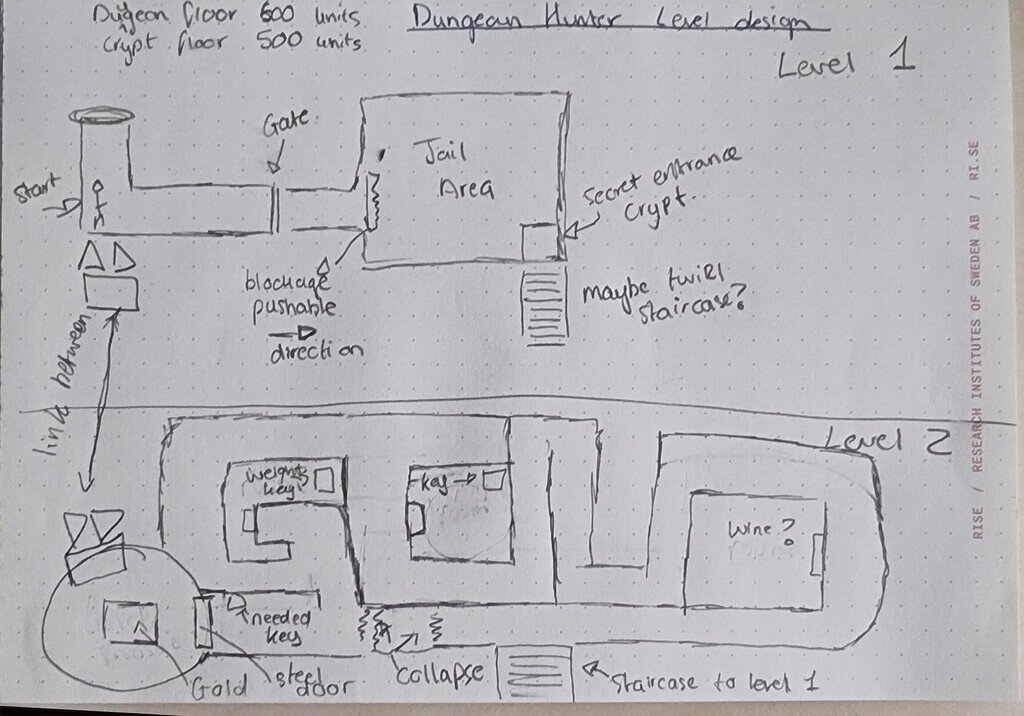 Dugeon floor 600 units
crypt floor 500 units
Dungean Hunter Level design
Level 1
Gate
Start
Jail
Area
secret entrance
crypt..
blockage
pushable
direction
maybe twirl
staircase?
link between
Level 2
weights
key
key
Wine?
needed
key
Gold
steel
door
Collapse
Staircase to level 1
RISE / RESEARCH INSTITUTES OF SWEDEN AB / RI.SE